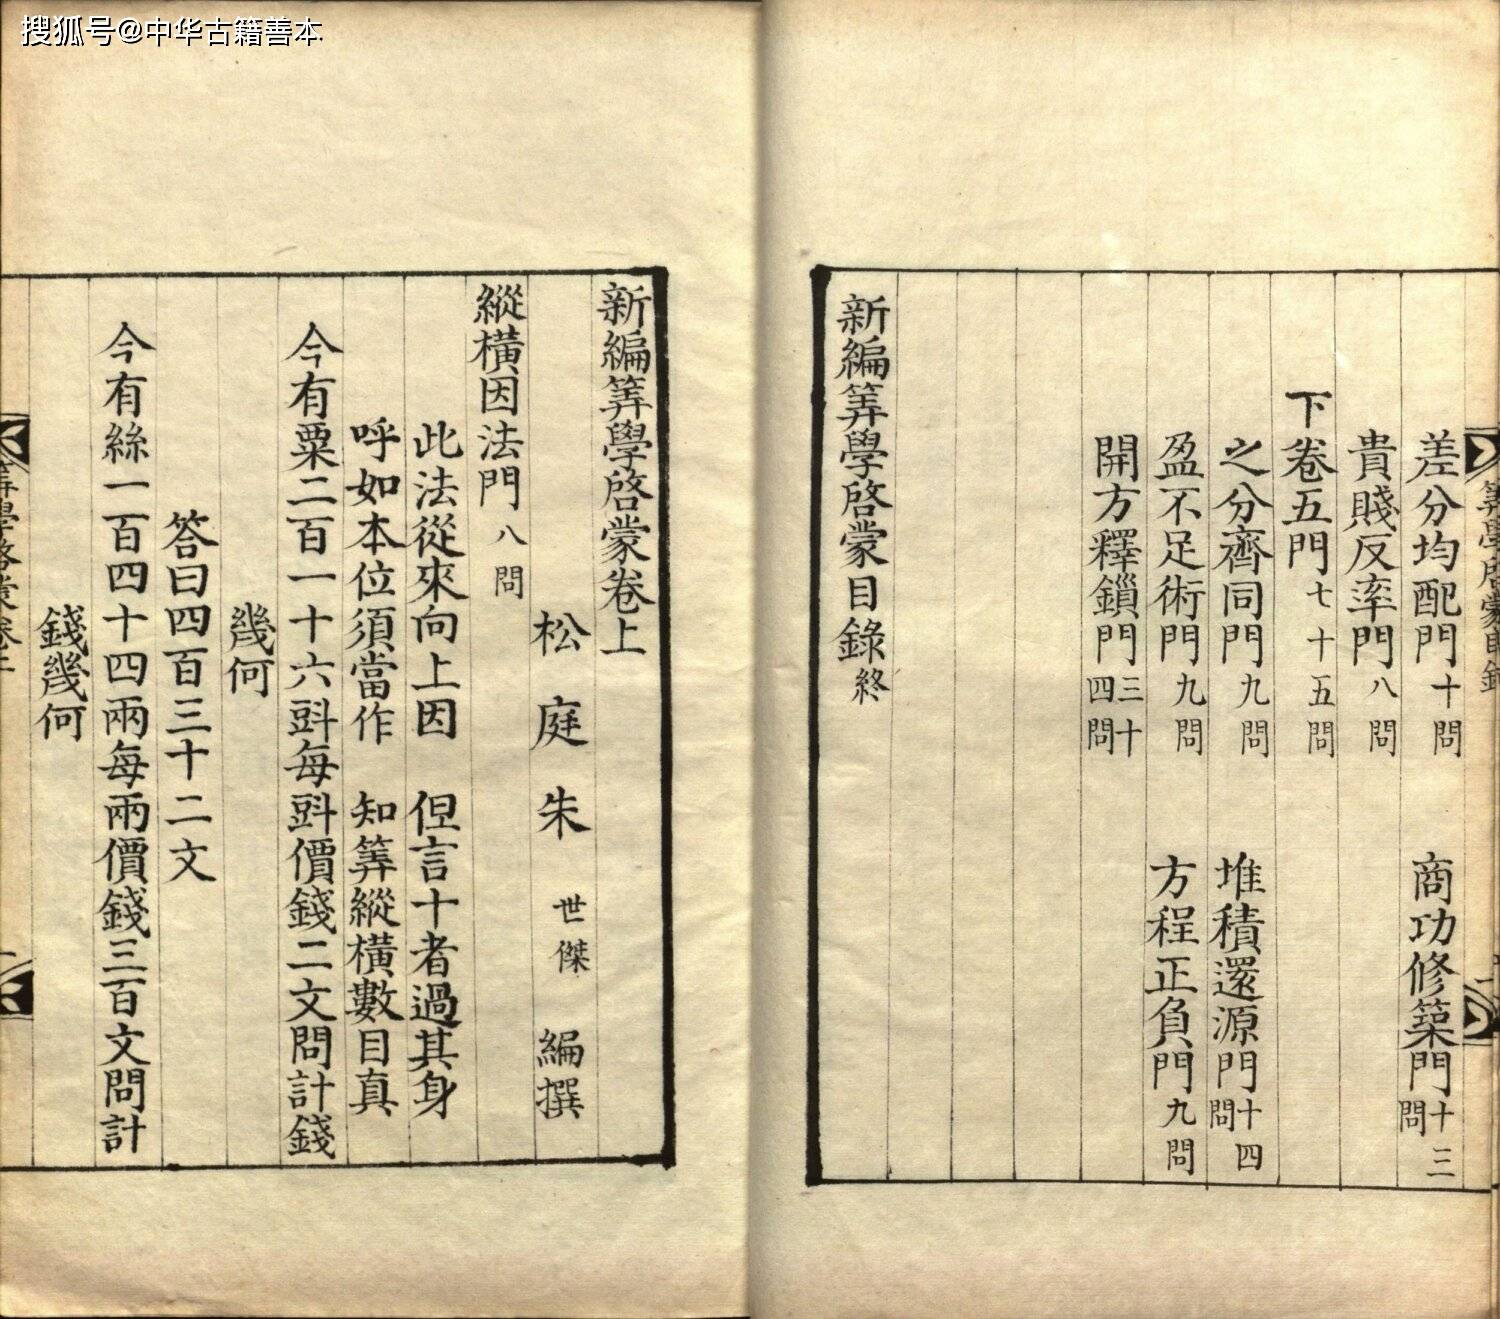 搜狐号@中华古籍善本
差分均配門十問 商功修築門十三問
貴賤反率門八問
下卷五門七十五問
之分齊同門九問 堆積還源門十四問
盈不足術門九問 方程正負門九問
開方釋鎖門三十四問
新編筭學啓蒙目錄終
新編筭學啓蒙卷上
松庭朱世傑編撰
縱橫因法門八問
此法從來向上因 但言十者過其身
呼如本位須當作 知筭縱橫數目真
今有粟二百一十六㪷每㪷價錢二文問計錢
幾何
答曰四百三十二文
今有絲一百四十四兩每兩價錢三百文問計
錢幾何